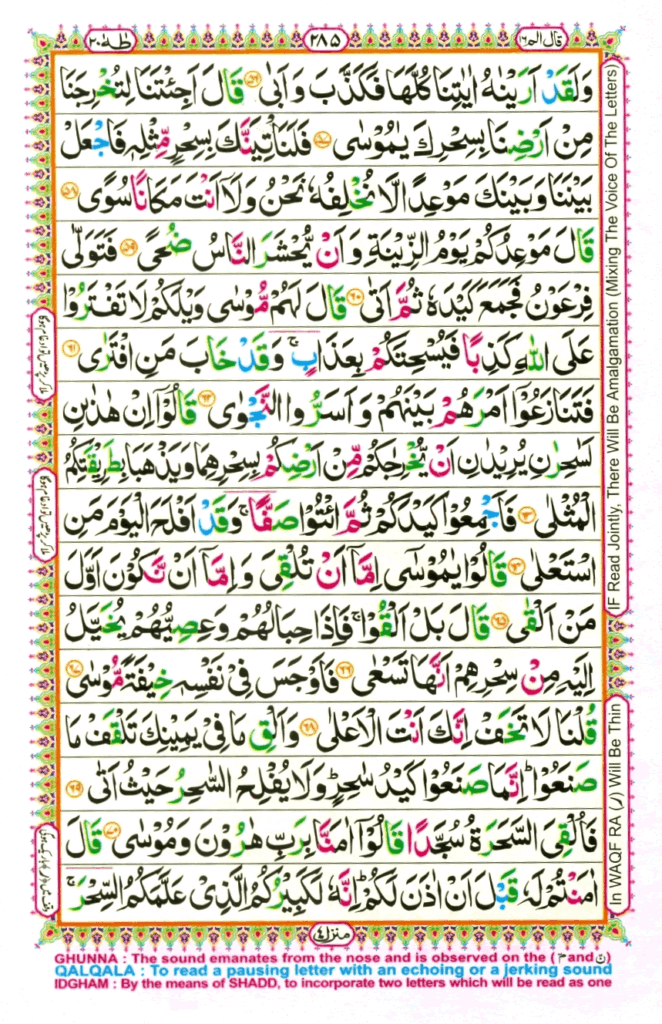 قال الم ١٦
٢٨٥
طٰهٰ ٢٠
وَلَقَدْ اَرَيْنٰهُ اٰيٰتِنَا كُلَّهَا فَكَذَّبَ وَاَبٰى ﴿۵۶﴾ قَالَ اَجِئْتَنَا لِتُخْرِجَنَا
مِنْ اَرْضِنَا بِسِحْرِكَ يٰمُوْسٰى ﴿۵۷﴾ فَلَنَاْتِيَنَّكَ بِسِحْرٍ مِّثْلِهٖ فَاجْعَلْ
بَيْنَنَا وَبَيْنَكَ مَوْعِدًا لَّا نُخْلِفُهٗ نَحْنُ وَلَاۤ اَنْتَ مَكَانًا سُوًى ﴿۵۸﴾
قَالَ مَوْعِدُكُمْ يَوْمُ الزِّيْنَةِ وَاَنْ يُّحْشَرَ النَّاسُ ضُحًى ﴿۵۹﴾ فَتَوَلّٰى
فِرْعَوْنُ فَجَمَعَ كَيْدَهٗ ثُمَّ اَتٰى ﴿۶۰﴾ قَالَ لَهُمْ مُّوْسٰى وَيْلَكُمْ لَا تَفْتَرُوْا
عَلَى اللّٰهِ كَذِبًا فَيُسْحِتَكُمْ بِعَذَابٍ ۚ وَقَدْ خَابَ مَنِ افْتَرٰى ﴿۶۱﴾
فَتَنَازَعُوْۤا اَمْرَهُمْ بَيْنَهُمْ وَاَسَرُّوا النَّجْوٰى ﴿۶۲﴾ قَالُوْۤا اِنْ هٰذٰنِ
لَسٰحِرٰنِ يُرِيْدٰنِ اَنْ يُّخْرِجٰكُمْ مِّنْ اَرْضِكُمْ بِسِحْرِهِمَا وَيَذْهَبَا بِطَرِيْقَتِكُمُ
الْمُثْلٰى ﴿۶۳﴾ فَاَجْمِعُوْا كَيْدَكُمْ ثُمَّ ائْتُوْا صَفًّا ۚ وَقَدْ اَفْلَحَ الْيَوْمَ مَنِ
اسْتَعْلٰى ﴿۶۴﴾ قَالُوْا يٰمُوْسٰۤى اِمَّاۤ اَنْ تُلْقِىَ وَاِمَّاۤ اَنْ نَّكُوْنَ اَوَّلَ
مَنْ اَلْقٰى ﴿۶۵﴾ قَالَ بَلْ اَلْقُوْا ۚ فَاِذَا حِبَالُهُمْ وَعِصِيُّهُمْ يُخَيَّلُ
اِلَيْهِ مِنْ سِحْرِهِمْ اَنَّهَا تَسْعٰى ﴿۶۶﴾ فَاَوْجَسَ فِىْ نَفْسِهٖ خِيْفَةً مُّوْسٰى ﴿۶۷﴾
قُلْنَا لَا تَخَفْ اِنَّكَ اَنْتَ الْاَعْلٰى ﴿۶۸﴾ وَاَلْقِ مَا فِىْ يَمِيْنِكَ تَلْقَفْ مَا
صَنَعُوْا ؕ اِنَّمَا صَنَعُوْا كَيْدُ سٰحِرٍ ؕ وَلَا يُفْلِحُ السّٰحِرُ حَيْثُ اَتٰى ﴿۶۹﴾
فَاُلْقِىَ السَّحَرَةُ سُجَّدًا قَالُوْۤا اٰمَنَّا بِرَبِّ هٰرُوْنَ وَمُوْسٰى ﴿۷۰﴾ قَالَ
اٰمَنْتُمْ لَهٗ قَبْلَ اَنْ اٰذَنَ لَكُمْ ؕ اِنَّهٗ لَكَبِيْرُكُمُ الَّذِىْ عَلَّمَكُمُ السِّحْرَ ۚ
منزل ٤
IF Read Jointly, There Will Be Amalgamation (Mixing The Voice Of The Letters)
In WAQF RA (ر) Will Be Thin
GHUNNA : The sound emanates from the nose and is observed on the (م and ن)
QALQALA : To read a pausing letter with an echoing or a jerking sound
IDGHAM : By the means of SHADD, to incorporate two letters which will be read as one